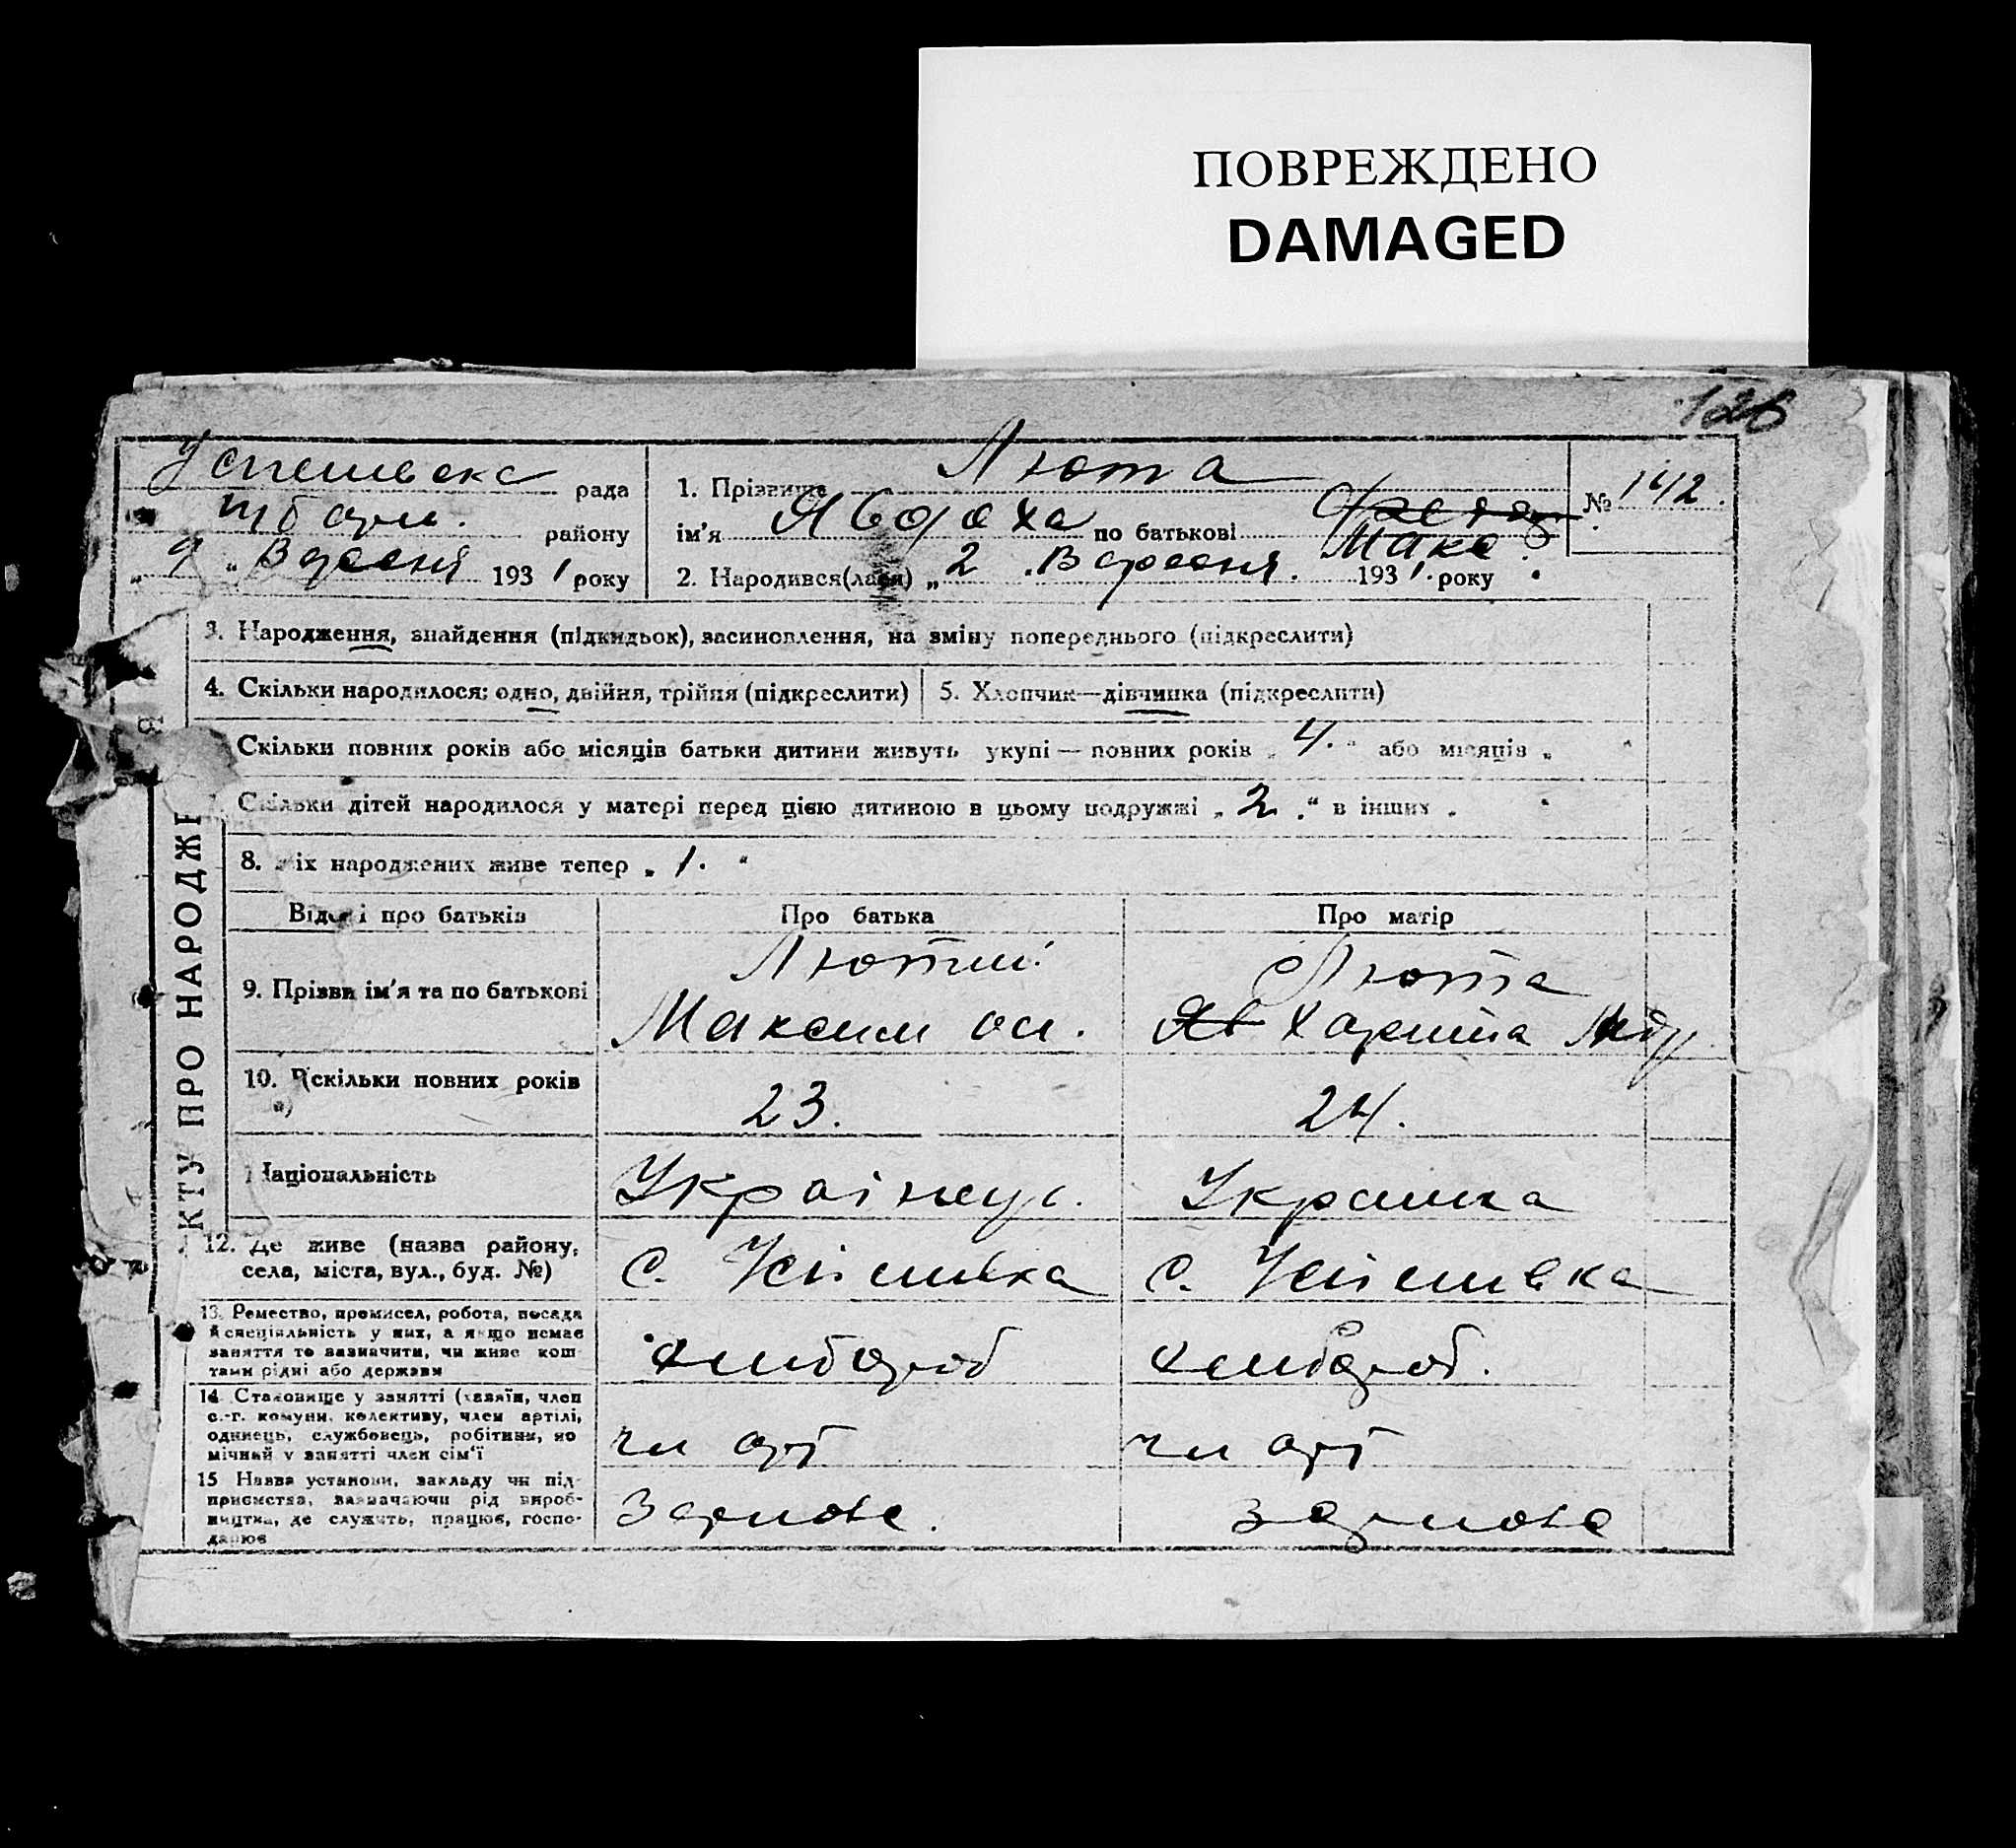 ПОВРЕЖДЕНО
DAMAGED
126
Успешвска рада
району
„ 9 „ Вересня 193 1 року
1. Прізвище Люта
ім'я Явдоха по батькові Макс.
2. Народився(лася) „ 2 . Вересня . 193 1 . року
№ 142.
3. Народження, знайдення (підкидьок), засиновлення, на зміну попереднього (підкреслити)
4. Скільки народилося: одно, двійня, трійня (підкреслити)
5. Хлопчик—дівчинка (підкреслити)
Скільки повних років або місяців батьки дитини живуть укупі — повних років „ 4. “ або місяців „ “
Скільки дітей народилося у матері перед цією дитиною в цьому подружжі „ 2 . “ в інших „
8. їх народжених живе тепер „ 1. “
КТУ ПРО НАРОДЖЕ
Відомі про батьків
Про батька
Про матір
9. Прізви ім'я та по батькові
Лютий
Максим ос.
Люта
Яв Харитта
10. Скільки повних років
23.
24.
Національність
Українец.
Украинка
12. Де живе (назва району, села, міста, вул., буд. №)
с. Успешвка
с. Успешвка
13. Ремество, промисел, робота, посада й спеціальність у них, а якщо немає заняття то зазначити, чи живе коштами рідні або держави
хлибороб
хлибороб.
14. Становище у занятті (хазяїн, член с.-г. комуни, колективу, член артілі, одинець, службовець, робітник, помічний у занятті член сім'ї
чл арт
чл арт
15 Назва установи, закладу чи підприємства, зазначаючи рід виробництва, де служить, працює, господарює
Зернове.
зернове